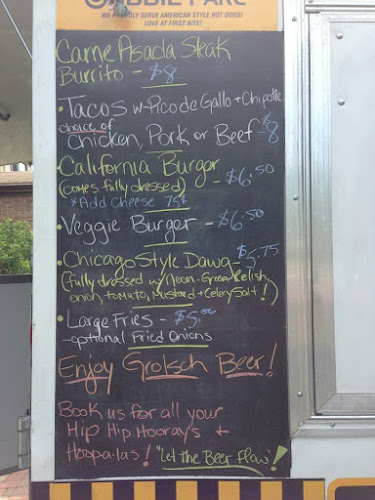 WE PROUDLY SERVE AMERICAN STYLE HOT DOGS!
LOVE AT FIRST BITE!
Carne Asada Steak
Burrito - $8
• Tacos w- Pico de Gallo + Chipotle
choice of
Chicken, Pork or Beef - $8
• California Burger
(comes fully dressed) - $6.50
*Add Cheese 75¢
• Veggie Burger - $6.50
• Chicago Style Dawg - $5.75
(fully dressed w/ Neon-Green Relish,
onion, tomato, Mustard + Celery Salt!)
• Large Fries - $5.00
- optional Fried Onions
Enjoy Grolsch Beer!
Book us for all your
Hip Hip Hoorays +
Hoopa-las! "Let the Beer flow"!